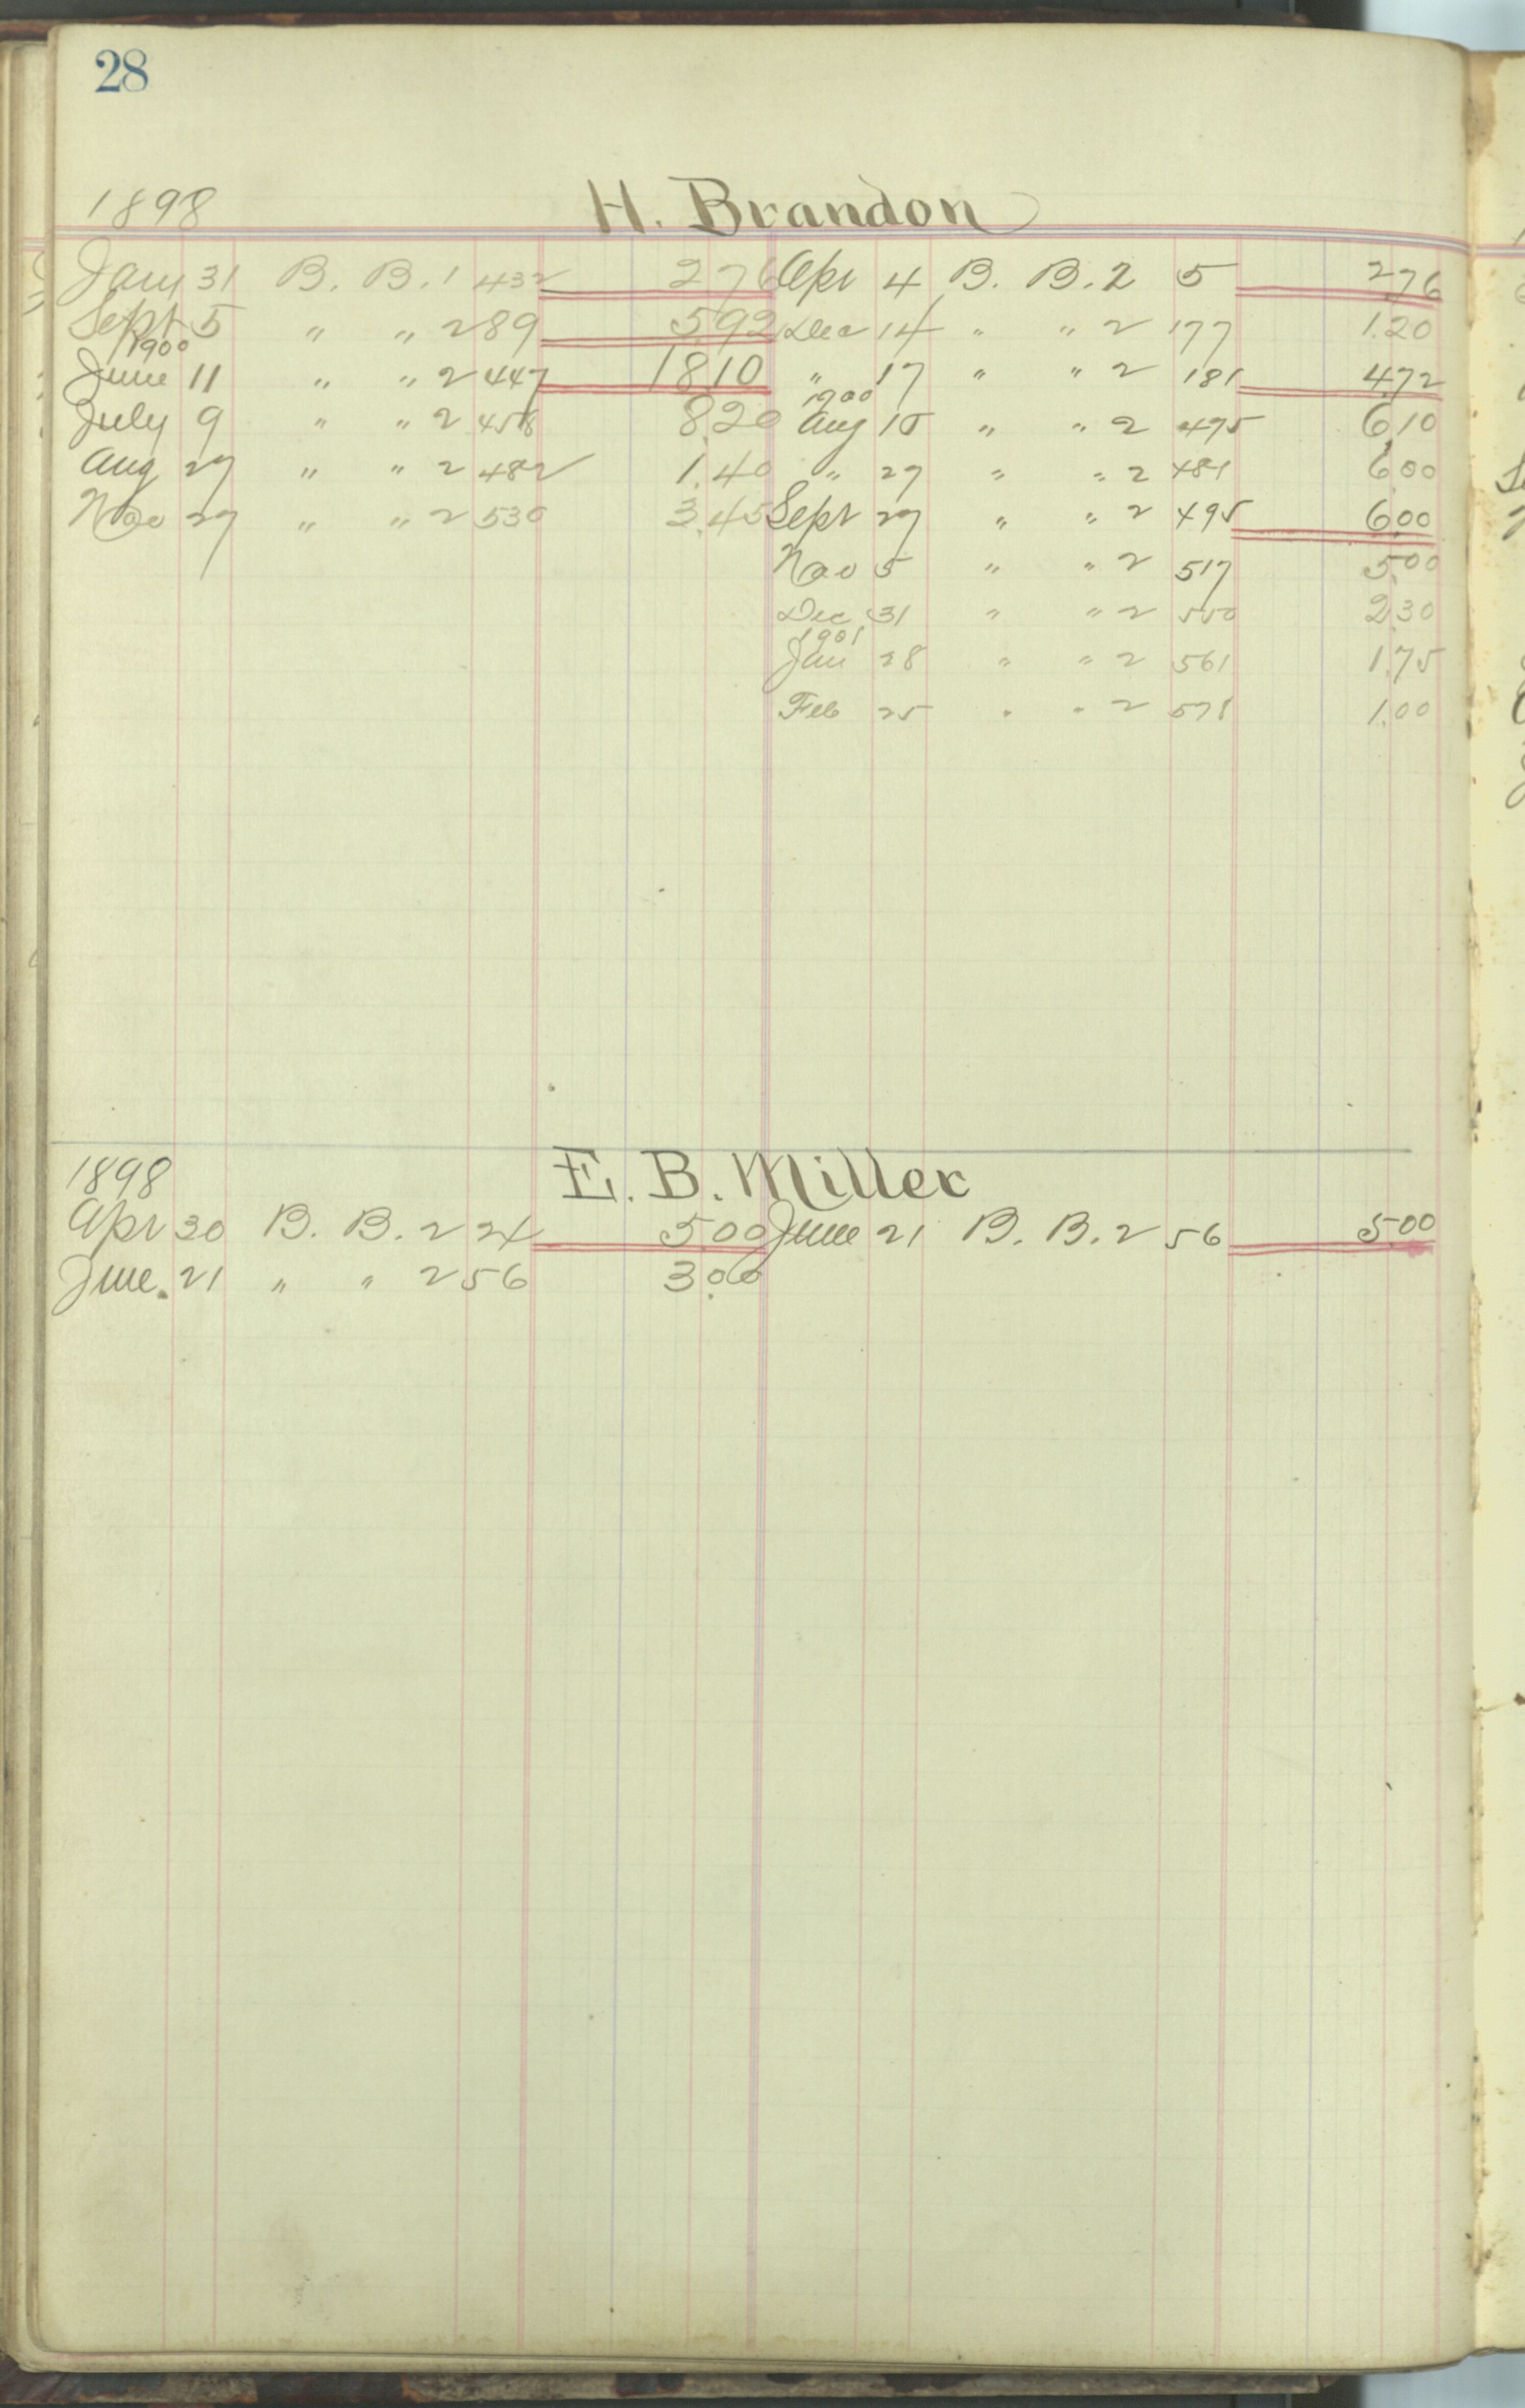 28
1898 H. Brandon
Jany 31 B. B. 1 432 2 76 Apr 4 B. B. 2 5 2 76
Sept 5 " " 2 89 5 92 Dec 14 " " 2 177 1.20
1900
June 11 " " 2 447 18 10 " 17 " " 2 181 4.72
1900
July 9 " " 2 458 8.20 Aug 15 " " 2 475 6,10
Aug 27 " " 2 482 1.40 " 27 " " 2 481 6.00
Nov 27 " " 2 530 3.45 Sept 27 " " 2 495 6.00
Nov 5 " " 2 517 5.00
Dec 31 " " 2 550 2.30
1901
Jan 28 " " 2 561 1.75
Feb 25 " " 2 578 1.00
1898 E. B. Miller
Apr 30 B. B. 2 24 5.00 June 21 B. B. 2 56 5.00
June 21 " " 2 56 3.00